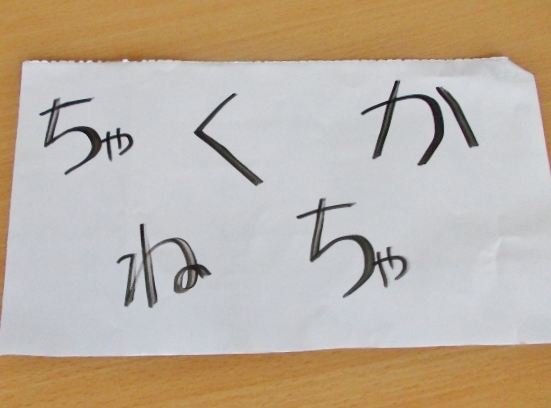 ちゃ く か
ね ちゃ